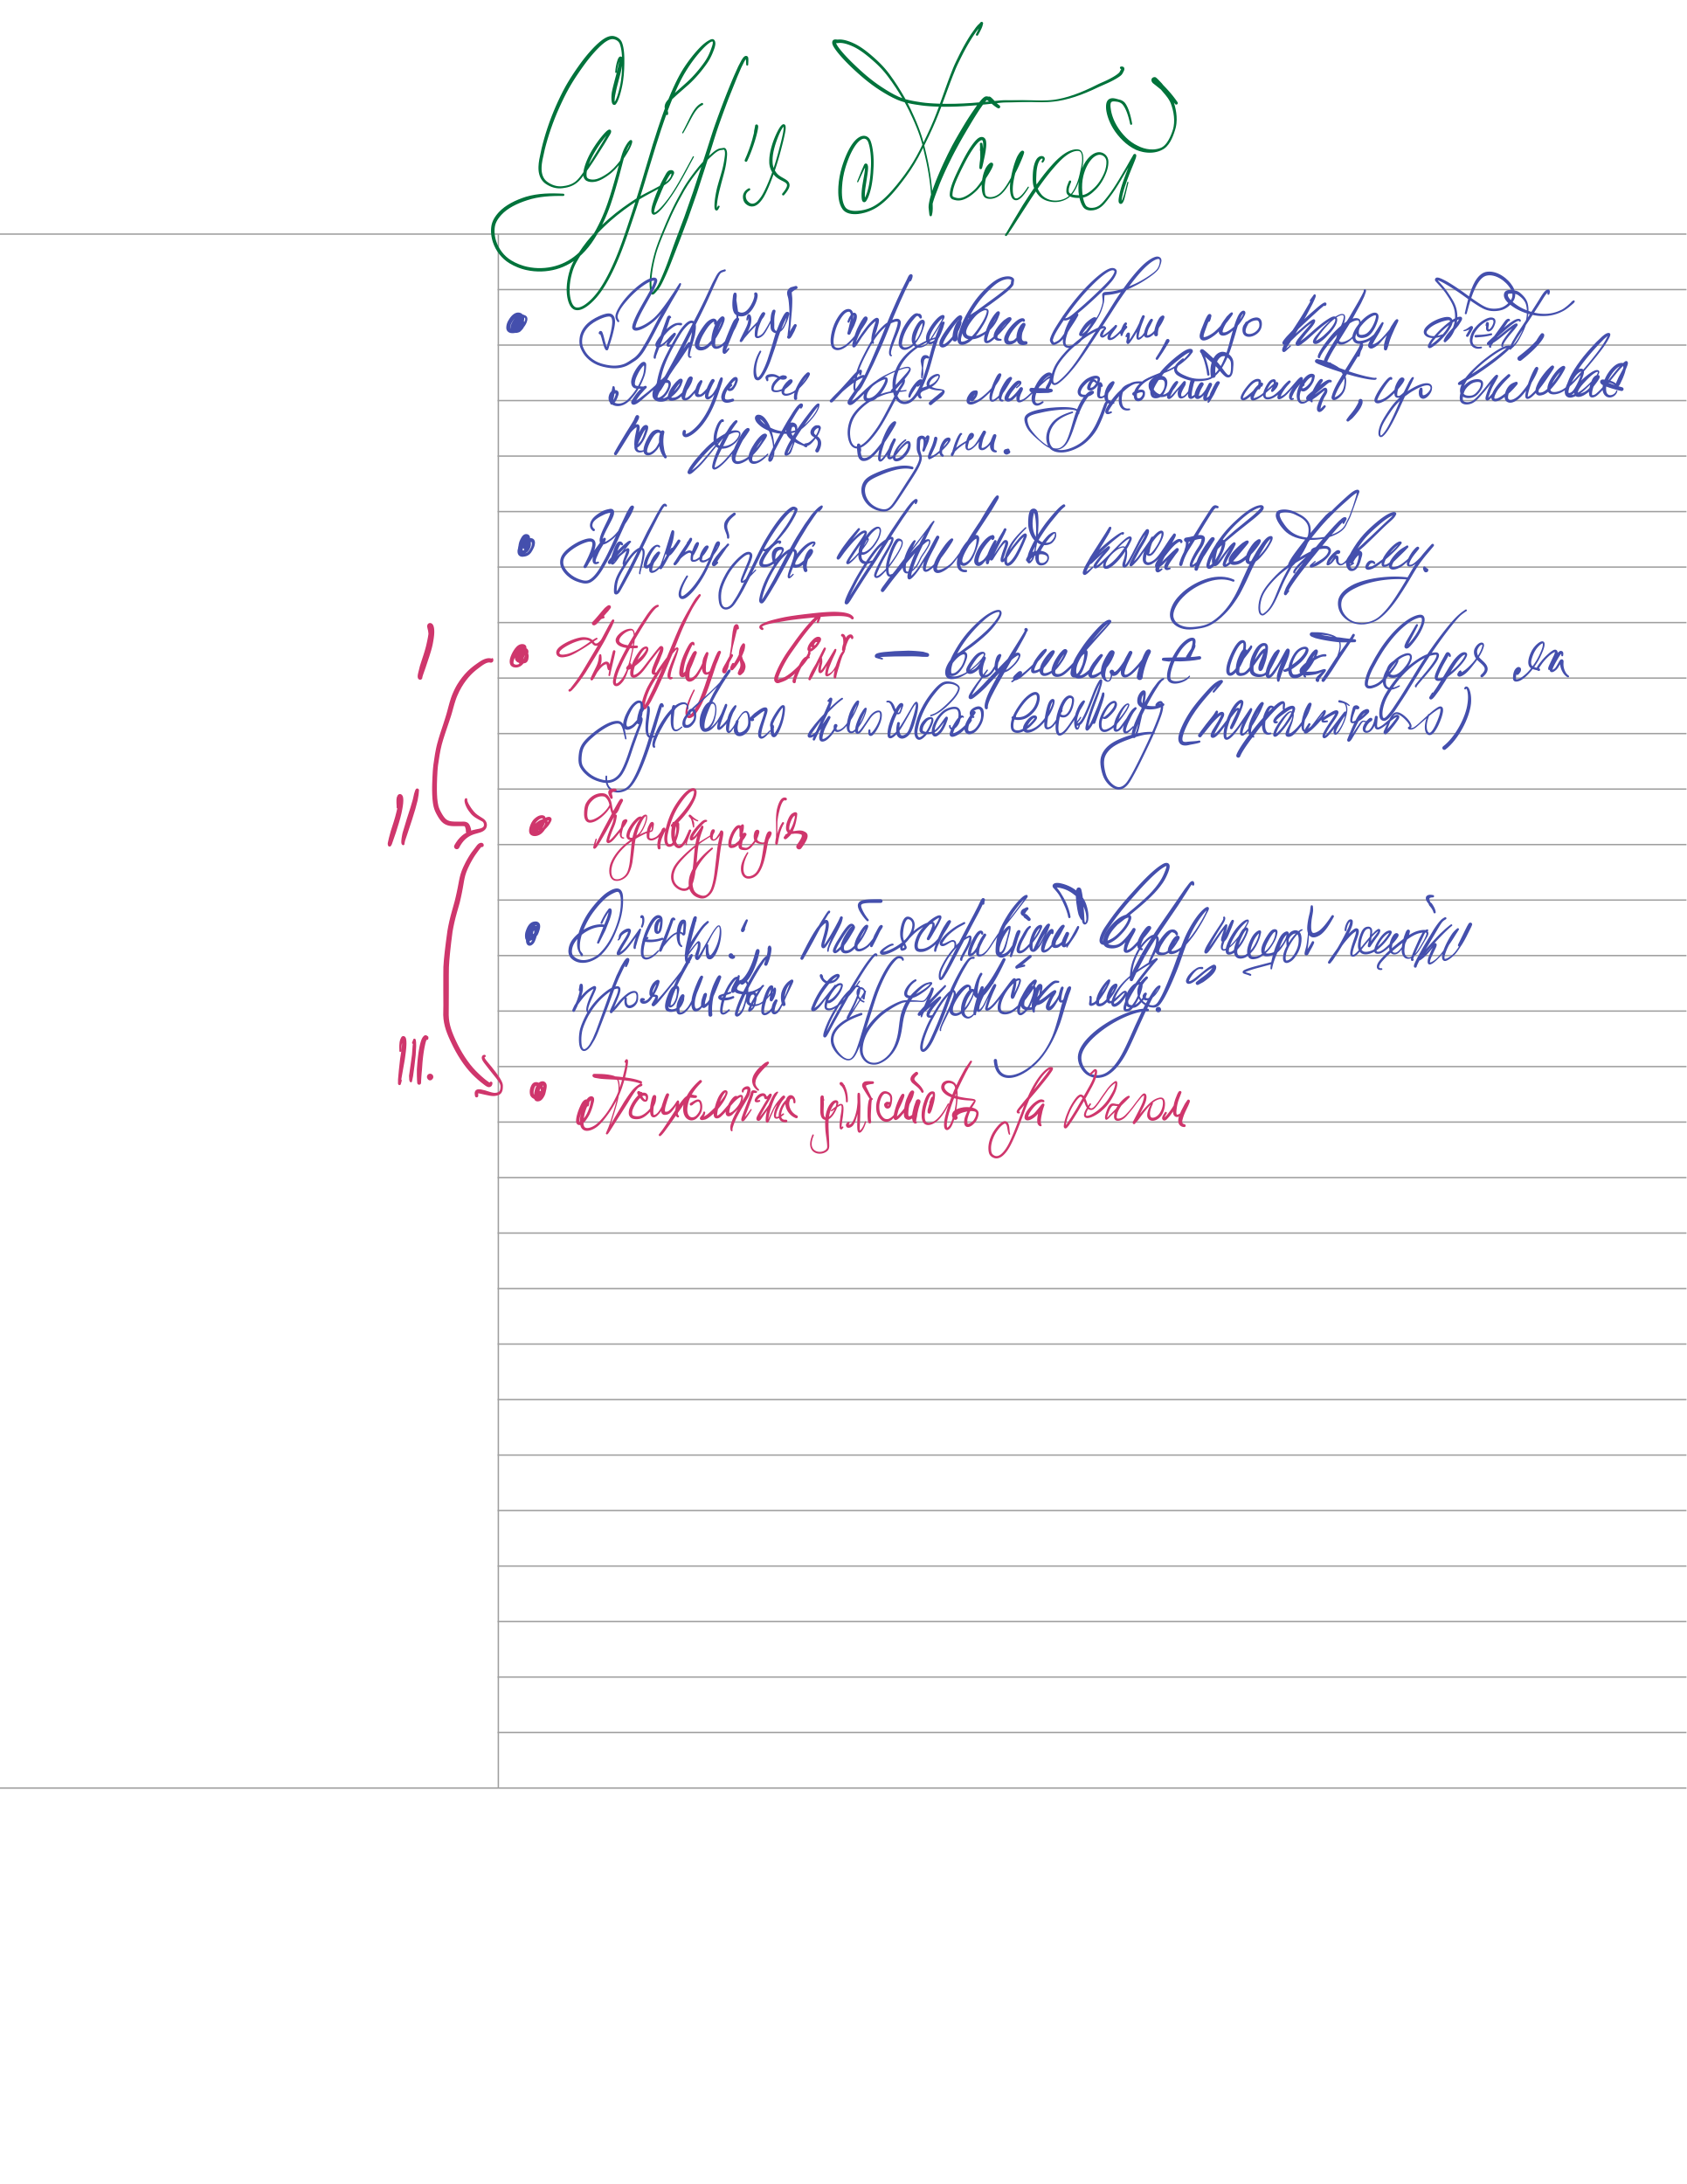 Сузір'я Психеї
• Українці спрадавна вірили, що кожен об'єкт,
явище чи подія має духовний аспект, що впливає
на життя людини.
• Українці зараз переживають колективну травму.
I • Інтеграція Тіні — важливим є аспект Серця як
духовного ключового елементу (психологічного)
II • Індивідуація
• Огієнко: „найяскравіший вираз нашої психіки
проявляється через українську мову."
III. • Психологічна цілісність за Юнгом